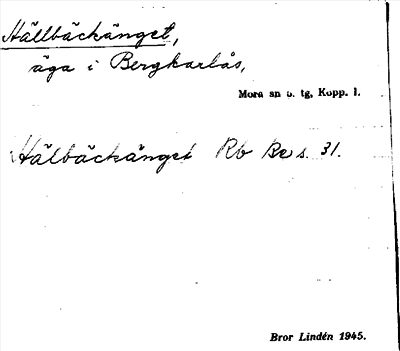 Hällbäckänget,
äga i Bergkarlås,
Mora sn o. tg, Kopp. l.
Hälbäckänget Rb Be s. 31.
Bror Lindén 1945.